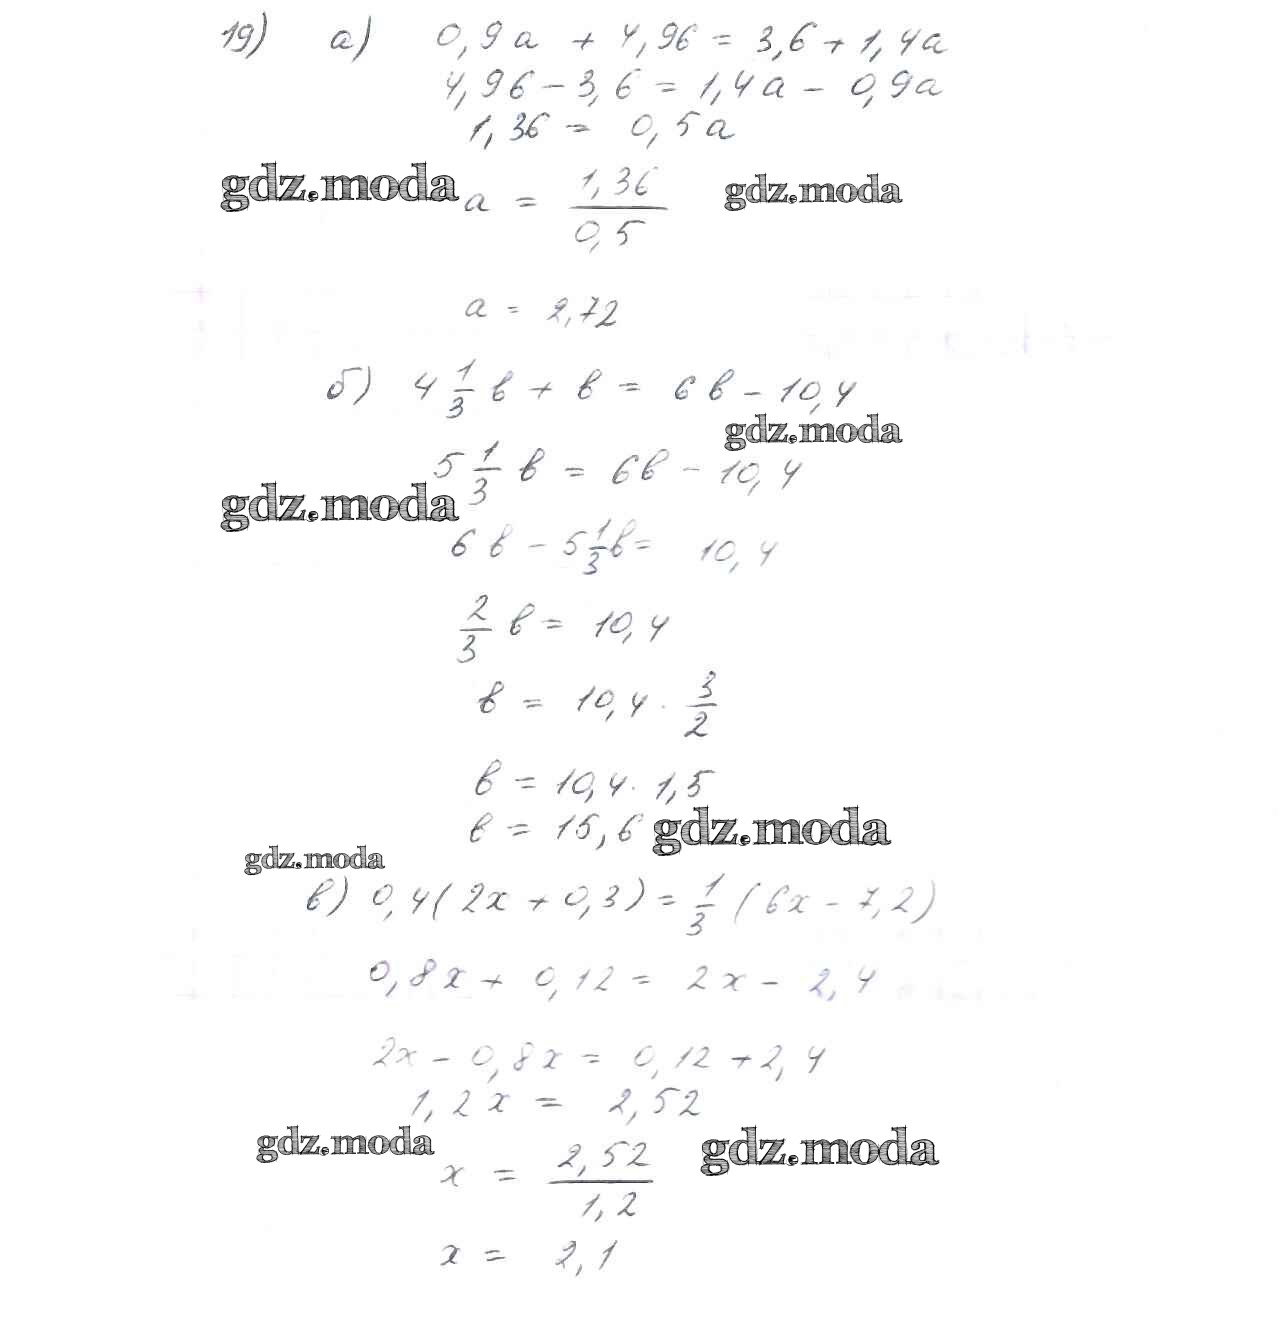 19) а) 0,9а + 4,96 = 3,6 + 1,4а
4,96 - 3,6 = 1,4а - 0,9а
1,36 = 0,5а
gdz.moda а = 1,36/0,5 gdz.moda
а = 2,72
б) 4 1/3 в + в = 6в - 10,4
gdz.moda
5 1/3 в = 6в - 10,4
gdz.moda
6в - 5 1/3 в = 10,4
2/3 в = 10,4
в = 10,4 · 3/2
в = 10,4 · 1,5
в = 15,6 gdz.moda
gdz.moda
в) 0,4(2х + 0,3) = 1/3 (6х - 7,2)
0,8х + 0,12 = 2х - 2,4
2х - 0,8х = 0,12 + 2,4
1,2х = 2,52
gdz.moda х = 2,52/1,2 gdz.moda
х = 2,1